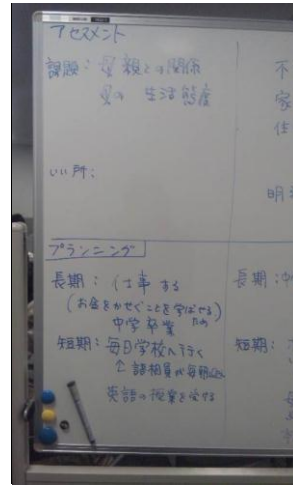 アセスメント
課題：母親との関係
母の 生活態度
いい所：
プランニング
長期：仕事する
(お金をかせぐことを学ばせる)
ため
中学卒業
短期：毎日学校へ行く
↑ 諸相員が毎朝
英語の授業を受ける
不
家
住
明
長期：中
短期：